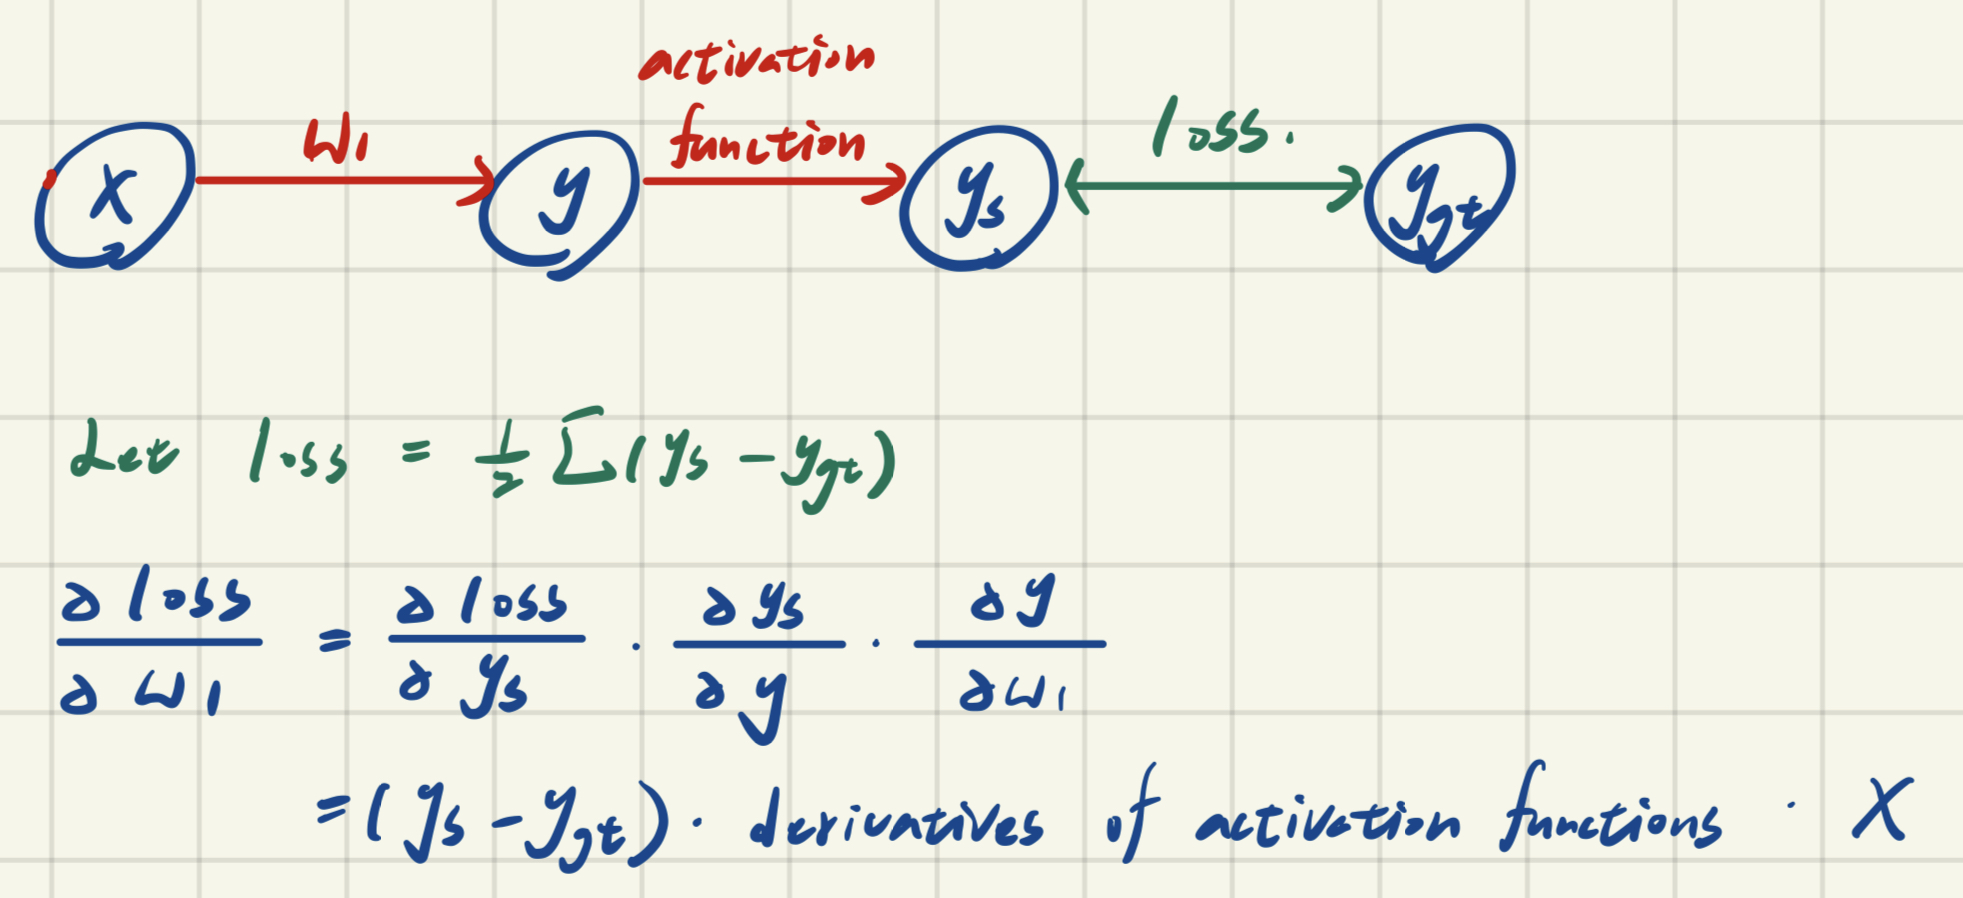 activation
function
W1
loss.
x
y
ys
ygt
Let loss = 1/2 Σ(ys - ygt)
∂loss/∂w1 = ∂loss/∂ys · ∂ys/∂y · ∂y/∂w1
= (ys - ygt) · derivatives of activation functions · X